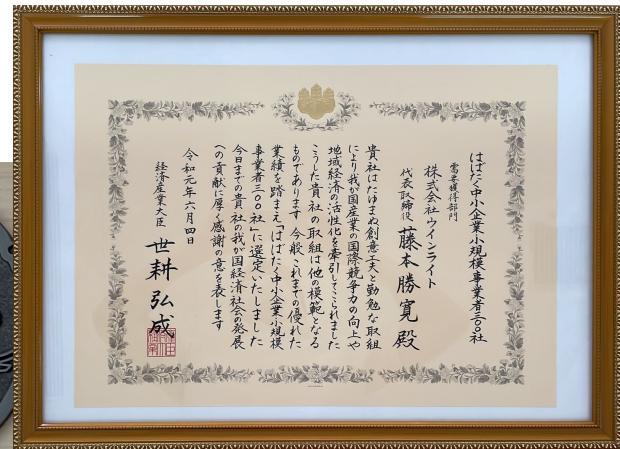 はばたく中小企業・小規模事業者三〇〇社
需要獲得部門
株式会社ウインライト
代表取締役 藤本勝寛殿
貴社はたゆまぬ創意工夫と勤勉な取組
により我が国産業の国際競争力の向上や
地域経済の活性化を牽引してこられました
こうした貴社の取組は他の模範となる
ものであります 今般これまでの優れた
業績を踏まえ「はばたく中小企業・小規模
事業者三〇〇社」に選定いたしました
今日までの貴社の我が国経済社会の発展
への貢献に厚く感謝の意を表します
令和元年六月四日
経済産業大臣 世耕弘成